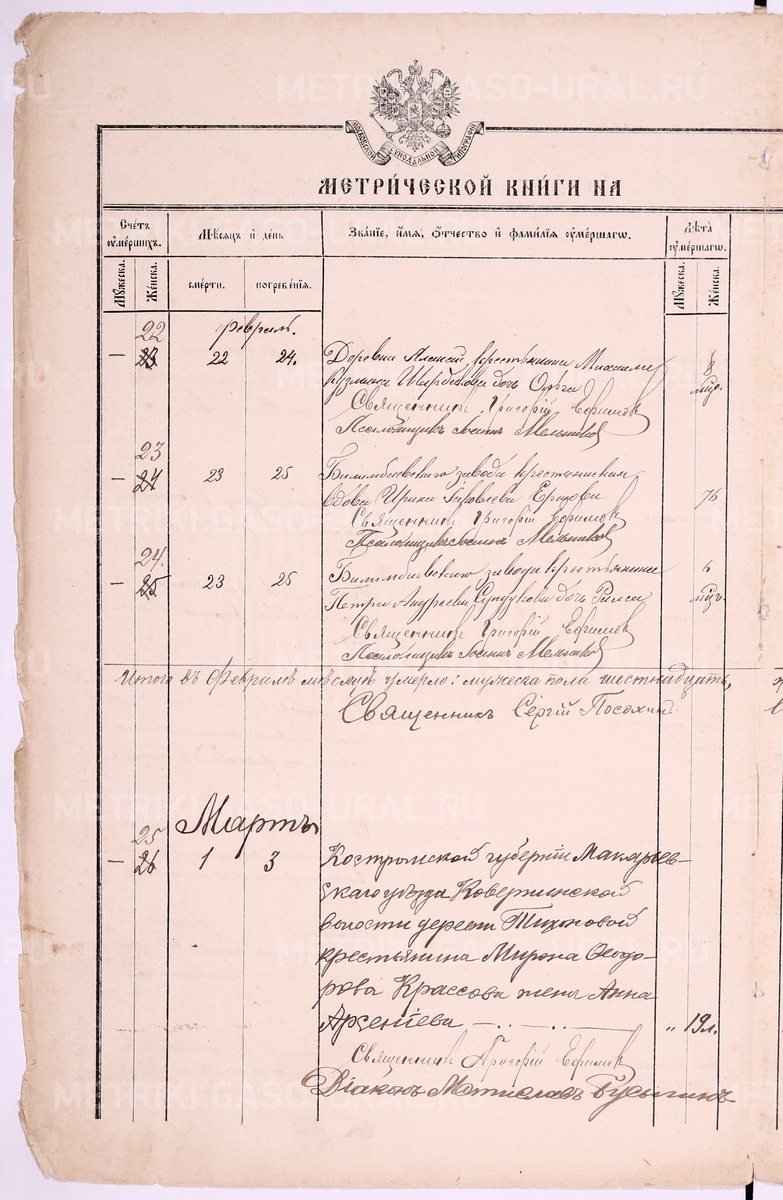 МОСКОВСКОЙ СѴНОДАЛЬНОЙ ТИПОГРАФІИ
МЕТРИ́ЧЕСКОЙ КНИ́ГИ НА
Сче́тъ оу҆ме́ршихъ.
Мѣ́сяцъ и҆ де́нь
Зва́нїе, и҆́мя, ѻ҆́тчество и҆ фами́лїя оу҆ме́ршагѡ.
Лѣ́та оу҆ме́ршагѡ.
Мꙋ́жеска.
Же́нска.
сме́рти.
погребе́нїя.
Мꙋ́жеска.
Же́нска.
22 Февраль.
— 23 22 24. Деревни крестьянина Михаила 8
Кузмина дочь Ольга мцв.
Священникъ Григорій Ефимовъ
Псаломщикъ Мельниковъ
23
— 24 23 25 Билимбаевскаго завода крестьянская
вдова Ирина Яковлева Ершова 76
Священникъ Григорій Ефимовъ
Псаломщикъ Мельниковъ
24.
— 25 23 25 Билимбаевскаго завода крестьянина 6
Петра Андреева дочь Раиса мцв
Священникъ Григорій Ефимовъ
Псаломщикъ Мельниковъ
Итого въ Февралѣ мѣсяцѣ умерло: мужеска пола шестнадцать,
Священникъ Сергій Посохин
Мартъ
25
— 26 1 3 Костромской губерніи Макарьев-
скаго уѣзда Ковернинской
волости деревни Тихоновой
крестьянина Мирона Ѳеодо-
рова Крассова жена Анна
Арсеніева — .. — .. — „ 19 л.
Священникъ Григорій Ефимовъ
Діаконъ Мстиславъ
METRIKI.GASO-URAL.RU